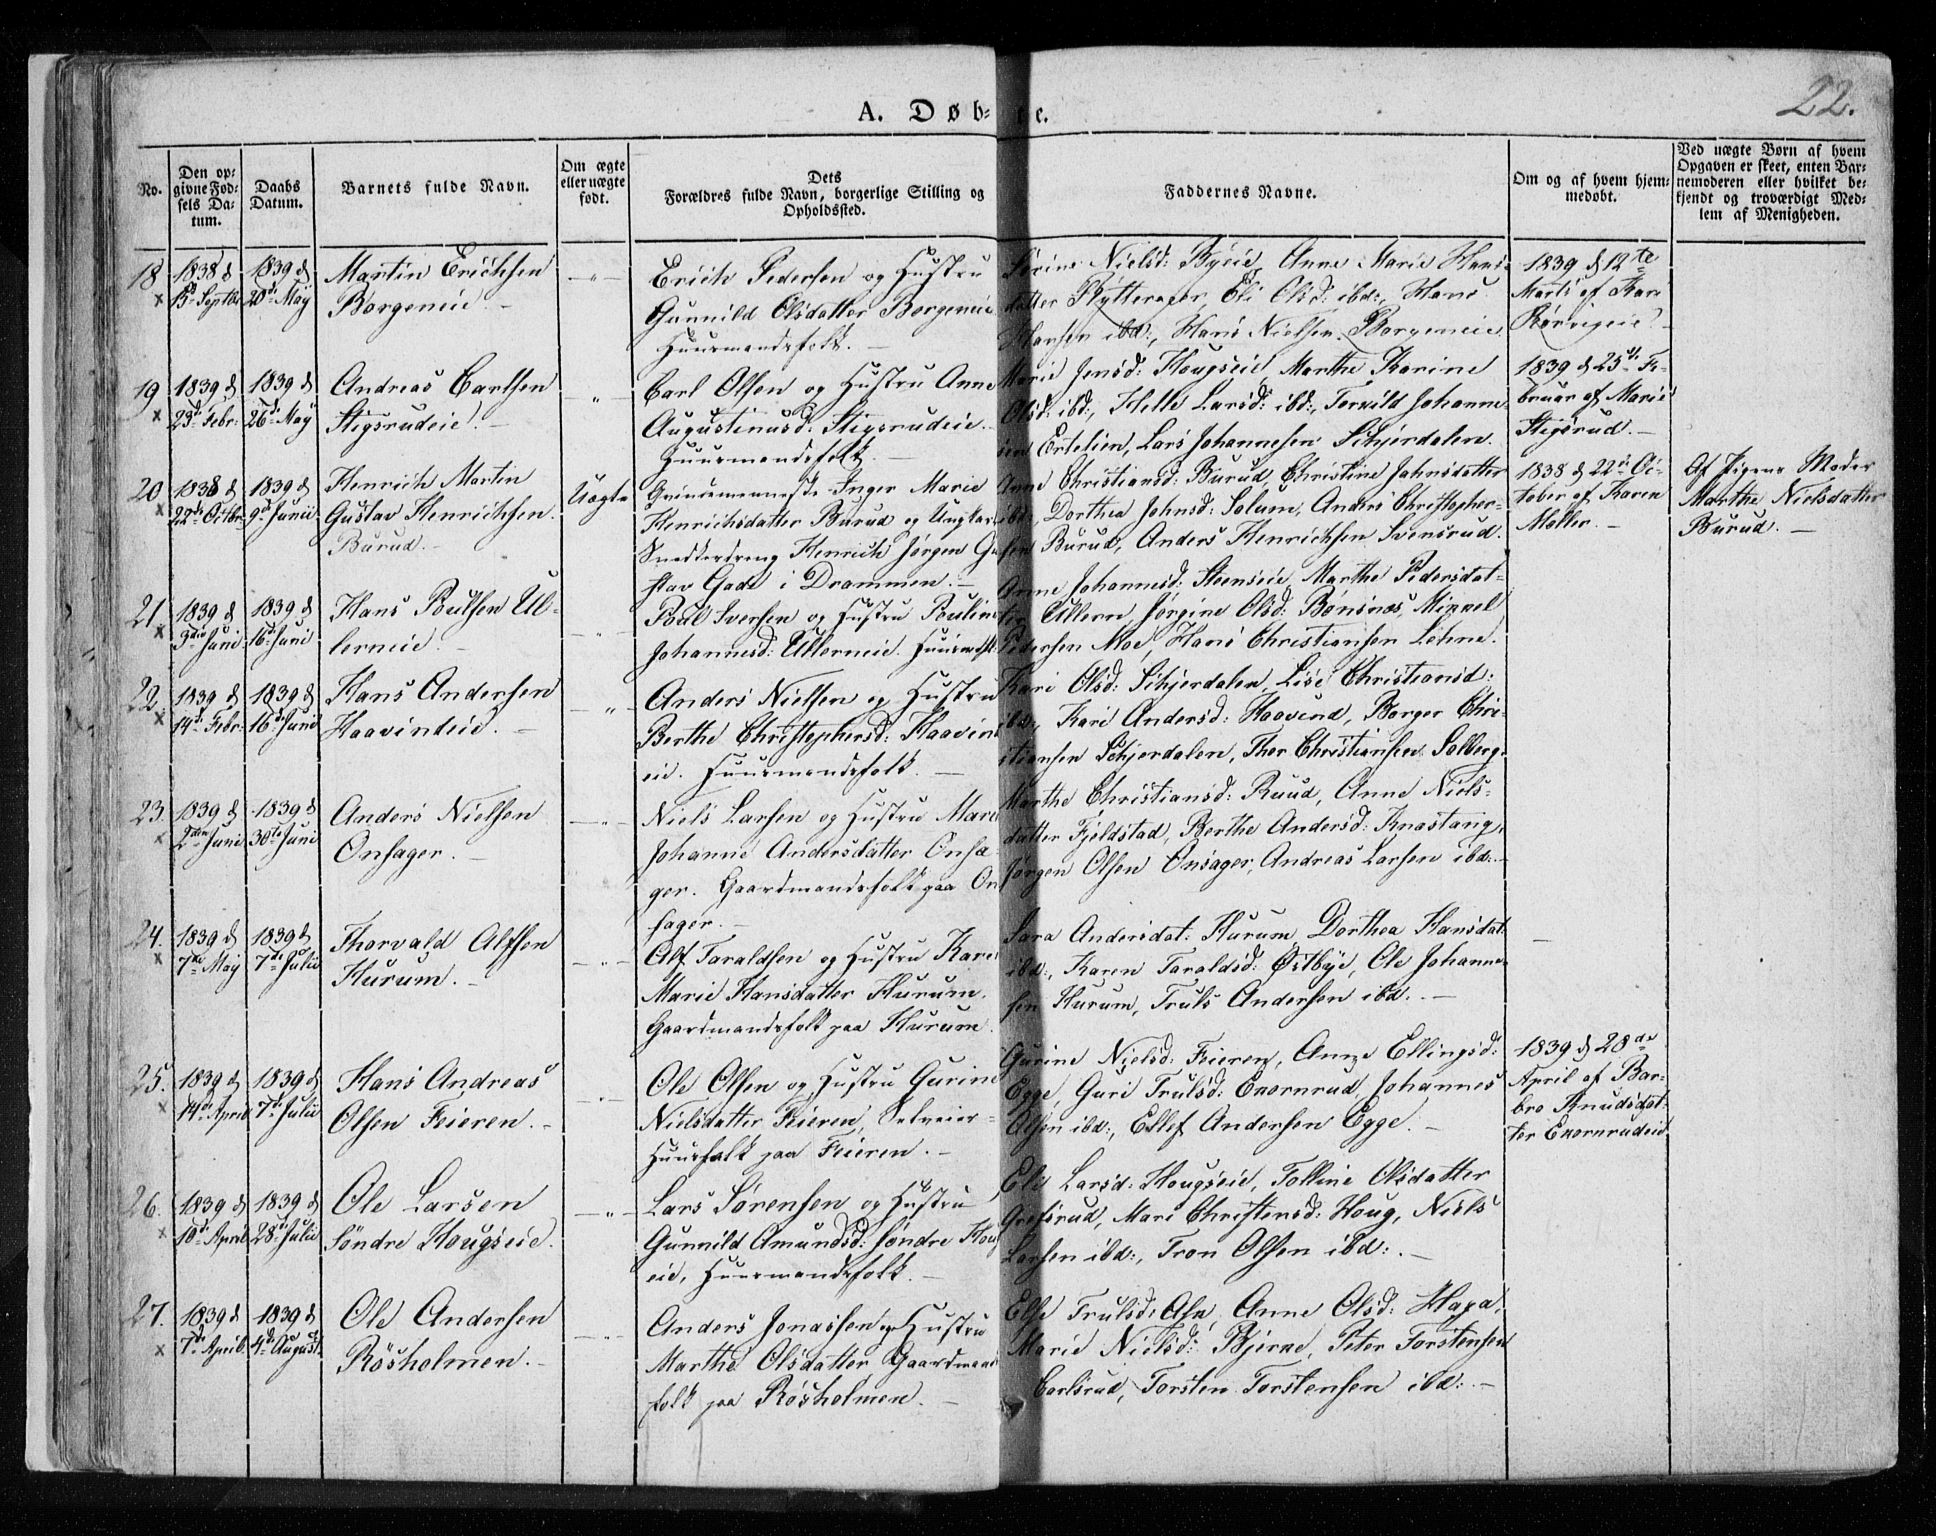 22.
A. Døb- te.
No.
Den op-
givne Fød-
sels Da-
tum.
Daabs
Datum.
Barnets fulde Navn.
Om ægte
eller uægte
født.
Dets
Forældres fulde Navn, borgerlige Stilling og
Opholdssted.
Faddernes Navne.
Om og af hvem hjem-
medøbt.
Ved uægte Børn af hvem
Opgaven er skeet, enten Bar-
nemoderen eller hvilket be-
kjendt og troværdigt Med-
lem af Menigheden.
18
1838 d
15d Septbr
1839 d
20d May
Martin Erichsen
Borgeneie. —
—"—
Erich Pedersen og Hustru
Gunnild Olsdatter Borgeneie
Huusmandsfolk. —
Sørine Nielsd: Byeie, Anne Marie Hans-
datter Skytterager, Eli Olsd: ibd:, Hans
Hansen ibd:, Hans Nielsen Borgeneie
1839 d 12te
Marts af Kari
19
1839 d
23d Febr:
1839 d
26d May
Andreas Carlsen
Stigsrudeie. —
"
Carl Olsen og Hustru Anne
Augustinusd: Stigsrudeie. —
Huusmandsfolk. —
Marie Jensd: Hougseie, Marthe Karine
Olsd: ibd:, Helle Larsd: ibd:, Torvild Johanne-
sen Ertelien, Lars Johannesen Schjerdalen.
1839 d 25de Fe-
bruar af Marie
Stigsrud. —
20
1838 d
22de Octbr:
1839 d
9d Junii
Henrich Martin
Gustav Henrichsen
Burud. —
Uægte
Qvindemenneske Inger Marie
Henrichsdatter Burud og Ungkarl
Snedkerdreng Henrich Jørgen Gu-
stav Gade i Drammen. —
Anne Christiansd: Burud, Christine Johnsdatter
ibd:, Dorthea Johnsd: Solum, Anders Christopher-
sen Burud, Anders Henrichsen Svensrud.
1838 d 22de Oc-
tober af Karen
Møller. —
Af Pigens Moder
Marthe Nielsdatter
Burud. —
21.
1839 d
3die Juni
1839 d
16d Juni
Hans Poulsen Ul-
lerneie. —
—"—
Poul Iversen og Hustru Pouline
Johannesd: Ullerneie. Huusmdsf:
Anne Johannesd: Steenseie, Marthe Pedersdat-
ter Ullern, Jørgine Olsd: Bønsnæs, Mikkel
Pedersen Moe, Hans Christiansen Lehne.
22.
1839 d
14d Febr:
1839 d
16d Juni
Hans Andersen
Haavindeie. —
—"—
Anders Nielsen og Hustru
Berthe Christophersd: Haavind-
eie. Huusmandsfolk. —
Kari Olsd: Schjerdalen, Lise Christiansd:
ibd:, Kari Andersd: Haavind, Borger Chri-
stiansen Schjerdalen, Thor Christiansen Solberg.
23.
1839 d
2den Juni
1839 d
30te Juni
Anders Nielsen
Onsager. —
—"—
Niels Larsen og Hustru Maren
Johanne Andersdatter Onsa-
ger. Gaardmandsfolk paa On-
sager. —
Marthe Christiansd: Ruud, Anne Niels-
datter Fjeldstad, Berthe Andersd: Knestang,
Jørgen Olsen Onsager, Andreas Larsen ibd:. —
24.
1839 d
7de May
1839 d
7de Julii
Thorvald Alfsen
Hurum. —
—"—
Alf Taraldsen og Hustru Karen
Marie Hansdatter Hurum.
Gaardmandsfolk paa Hurum.
Sara Andersdat: Hurum, Dorthea Hansdat:
ibd:, Karen Taraldsd: Østbye, Ole Johanne-
sen Hurum, Truls Andersen ibd. —
—
25.
1839 d
14de April
1839 d
7de Julii
Hans Andreas
Olsen Feieren. —
"
Ole Olsen og Hustru Gurine
Nielsdatter Feieren, Selveier-
Huusfolk paa Feieren. —
Gurine Nielsd: Feieren, Anne Ellingsd:
Egge, Guri Trulsd: Exornrud, Johannes
Olsen ibd:, Ellef Andersen Egge. —
1839 d 28de
April af Bar-
bro Knudsdat-
ter Exornrudeie
26.
1839 d
10de April
1839 d
28de Julii
Ole Larsen
Søndre Hougseie.
—"—
Lars Sørensen og Hustru
Gunnild Amundsd: søndre Houg-
eie, Huusmandsfolk. —
Eli Larsd: Hougseie, Tolline Olsdatter
Grefsrud, Mari Christensd: Houg, Niels
Larsen ibd:, Tron Olsen ibd:. —
27.
1839 d
7de April
1839 d
4de August.
Ole Andersen
Røsholmen. —
—"—
Anders Jonassen og Hustru
Marthe Olsdatter Gaardmands-
folk paa Røsholmen. —
Else Trulsd: Asn, Anne Olsd: Haga,
Marie Nielsd: Bjerne, Peter Torstensen
Carlsrud, Torsten Torstensen ibd:. —